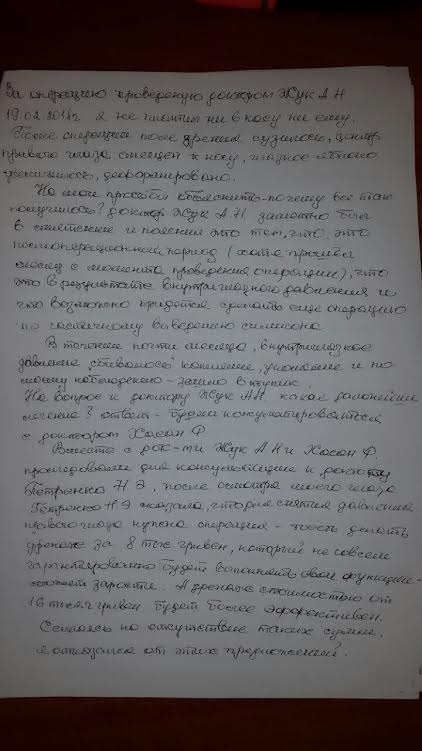 За операцию проведеную доктором Жук А Н
19.02.2014г. я не платил ни в касу ни ему.
После операции поле зрения сузилось, центр
правого глаза смещен к носу, глазное яблоко
увеличилось, деформировано.
На мои просьбы объяснить - почему всё так
получилось? доктор Жук А.Н заметно был
в смятении и пояснил это тем, что это
послеоперационный период (хотя прошёл
месяц с момента проведения операции), что
это в результате внутриглазного давления и
что возможно придется сделать еще операцию
по частичному выведению силикона
В течение почти месяца, внутриглазное
давление "сбивалось" каплями, уколами и по
моему наблюдению - зашло в тупик.
На вопрос к доктору Жук АН. какое дальнейшее
лечение? ответ - будем консультироваться
с доктором Хасан Ф.
Вместе с док-ми Жук А Н и Хасан Ф.
проследовали для консультации к доктору
Петренко Н Э, после осмотра моего глаза
Петренко Н Э сказала, что для снятия давления
правого глаза нужна операция - тоесть делать
дренаж за 8 тыс гривен, который не совсем
гарантировано будет выполнять свои функции -
может зарасти. А дренаж стоимостью от
16 тысяч гривен будет более эффективен.
Ссылаясь на отсутствие таких сумм,
я отказался от этих предложений.